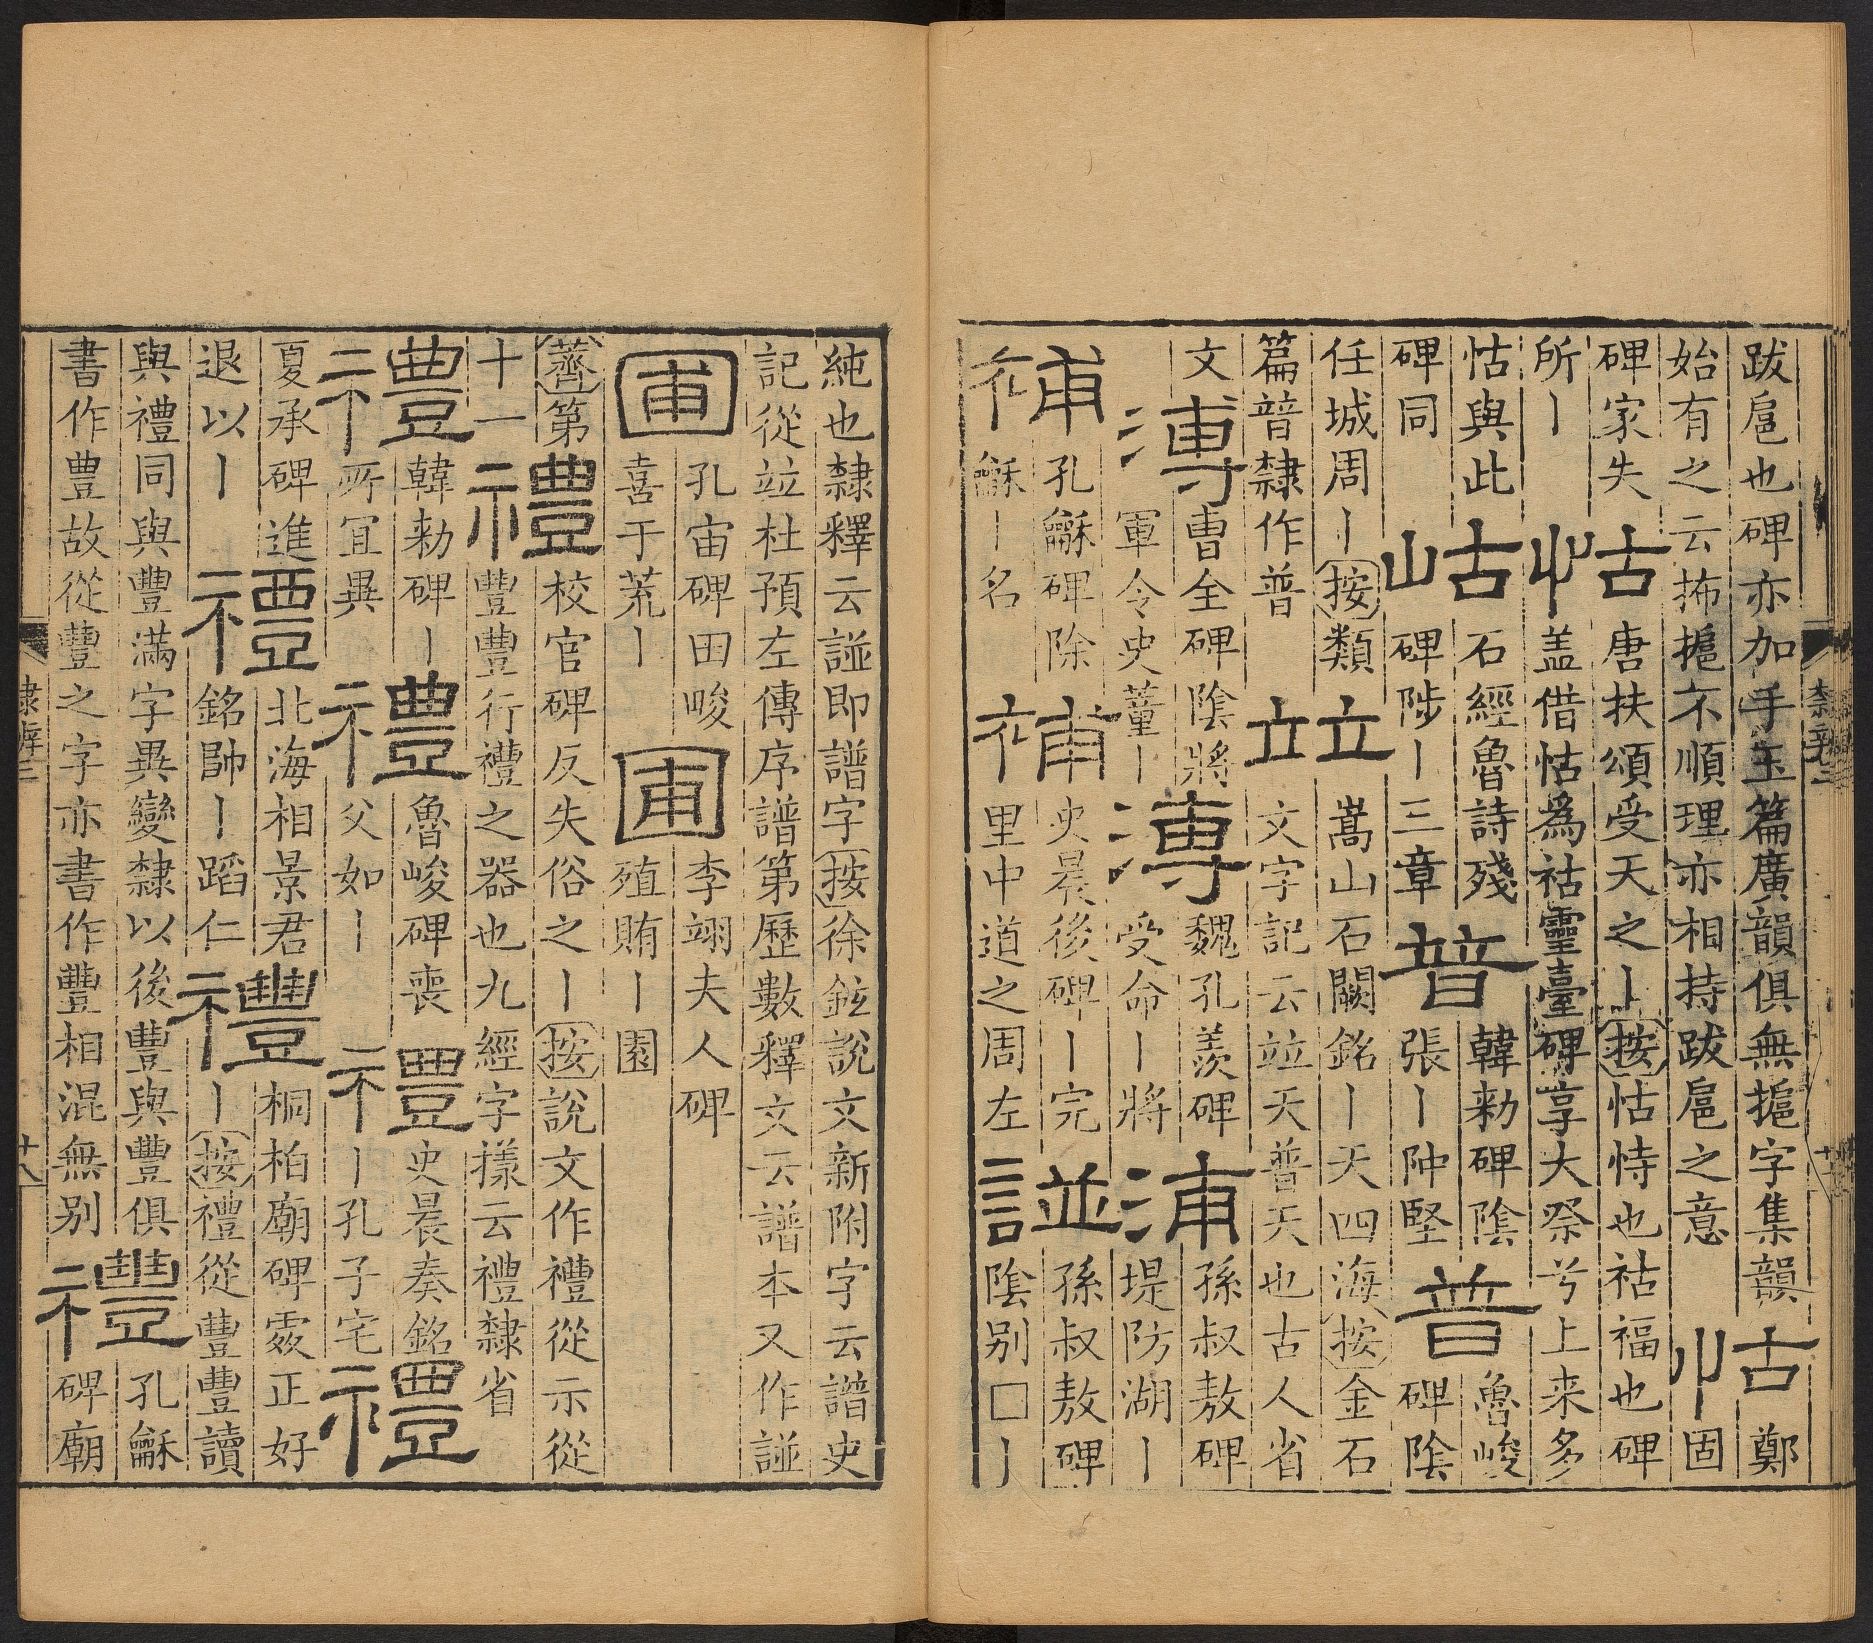 跋扈也碑亦加手玉篇廣韻俱無摢字集韻
始有之云抪摢不順理亦相持跋扈之意
怙
鄭
固
碑家失
所丨
怙
唐扶頌受天之丨按怙恃也祜福也碑
蓋借怙為祜靈臺碑享大祭兮上来多
怙與此
碑同
岵
石經魯詩殘
碑陟丨三章
普
韓勑碑陰
張丨仲堅
普
魯峻
碑陰
任城周丨按類
篇普隸作普
竝
嵩山石闕銘丨天四海按金石
文字記云竝天普天也古人省
文
溥
曹全碑陰將
軍令史董丨
溥
魏孔羨碑
受命丨將
浦
孫叔敖碑
堤防湖丨
補
孔龢碑除
龢丨名
補
史晨後碑丨完
里中道之周左
䜍
孫叔敖碑
陰别□丨
純也隸釋云䜍即譜字按徐鉉說文新附字云譜史
記從竝杜預左傳序譜第歷數釋文云譜本又作䜍
圃
孔宙碑田畯
喜于荒丨
圃
李翊夫人碑
殖賄丨園
薺第
十一
禮
校官碑反失俗之丨按說文作禮從示從
豐豊行禮之器也九經字㨾云禮隸省
禮
韓勑碑丨
所宜異
禮
魯峻碑喪
父如丨
禮
史晨奏銘
丨孔子宅
禮
夏承碑進
退以丨
禮
北海相景君
銘帥丨蹈仁
禮
桐柏廟碑奚正好
丨按禮從豊豊讀
與禮同與豐滿字異變隸以後豊與豐俱
書作豊故從豐之字亦書作豊相混無别
禮
孔龢
碑廟
隸辨三
十八